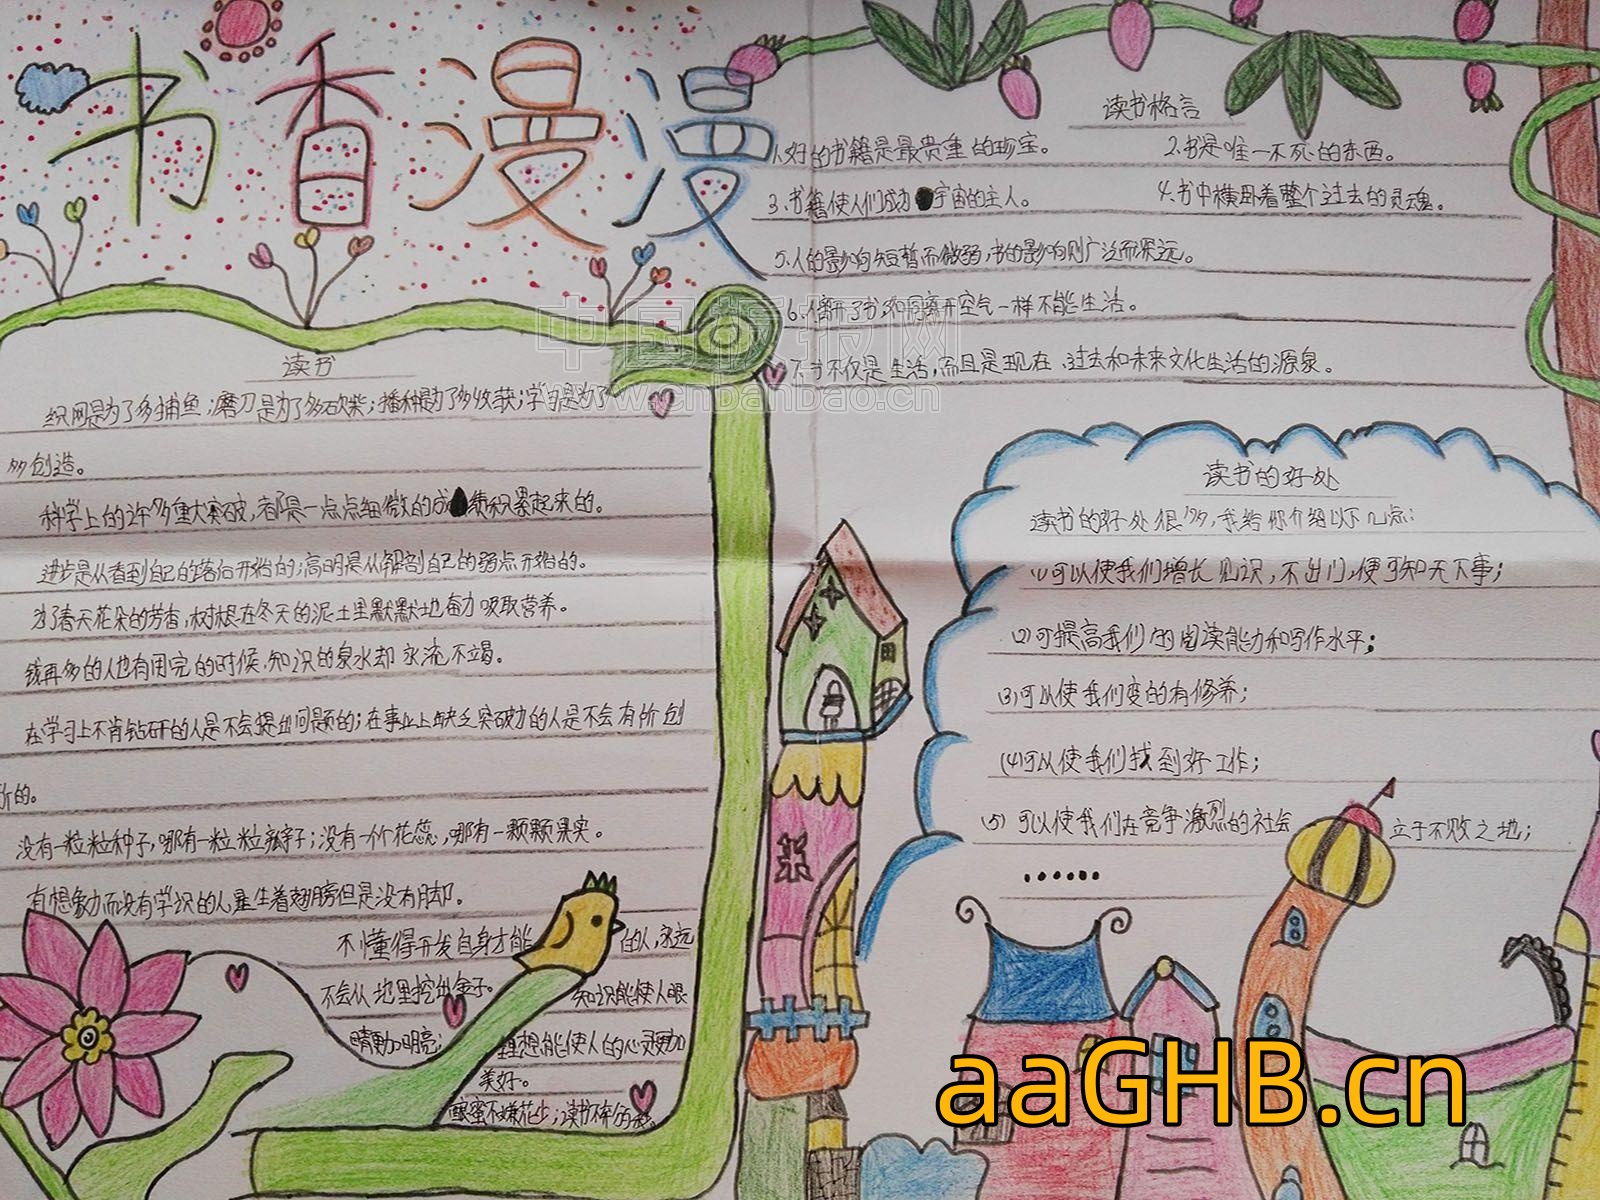 书香漫漫
读书格言
1.好的书籍是最贵重的珍宝。
2.书是唯一不死的东西。
3.书籍使人们成为宇宙的主人。
4.书中横卧着整个过去的灵魂。
5.人的影响短暂而微弱,书的影响则广泛而深远。
6.人离开了书,如同离开空气一样不能生活。
7.书不仅是生活,而且是现在、过去和未来文化生活的源泉。
中国板报网
www.cnbanbao.cn
读书
织网是为了多捕鱼;磨刀是为了多砍柴;播种是为了多收获;学习是为了
多创造。
科学上的许多重大突破,都是一点点细微的成绩积累起来的。
进步是从看到自己的落后开始的;高明是从解剖自己的弱点开始的。
为了春天花朵的芳香,树根在冬天的泥土里默默地奋力吸取营养。
钱再多的人也有用完的时候,知识的泉水却永流不竭。
在学习上不肯钻研的人是不会提出问题的;在事业上缺乏突破力的人是不会有所创
所的。
没有一粒粒种子,哪有一粒粒瓠子;没有一个个花蕊,哪有一颗颗果实。
有想象力而没有学识的人虽生着翅膀但是没有脚。
不懂得开发自身才能的人,永远
不会从地里挖出金子。知识能使人眼
睛更加明亮;理想能使人的心灵更加
美好。
蜜不嫌花少;读书不
读书的好处
读书的好处很多,我给你介绍以下几点:
(1)可以使我们增长见识,不出门,便可知天下事;
(2)可提高我们的阅读能力和写作水平;
(3)可以使我们变的有修养;
(4)可以使我们找到好工作;
(5)可以使我们在竞争激烈的社会立于不败之地;
......
aaGHB.cn